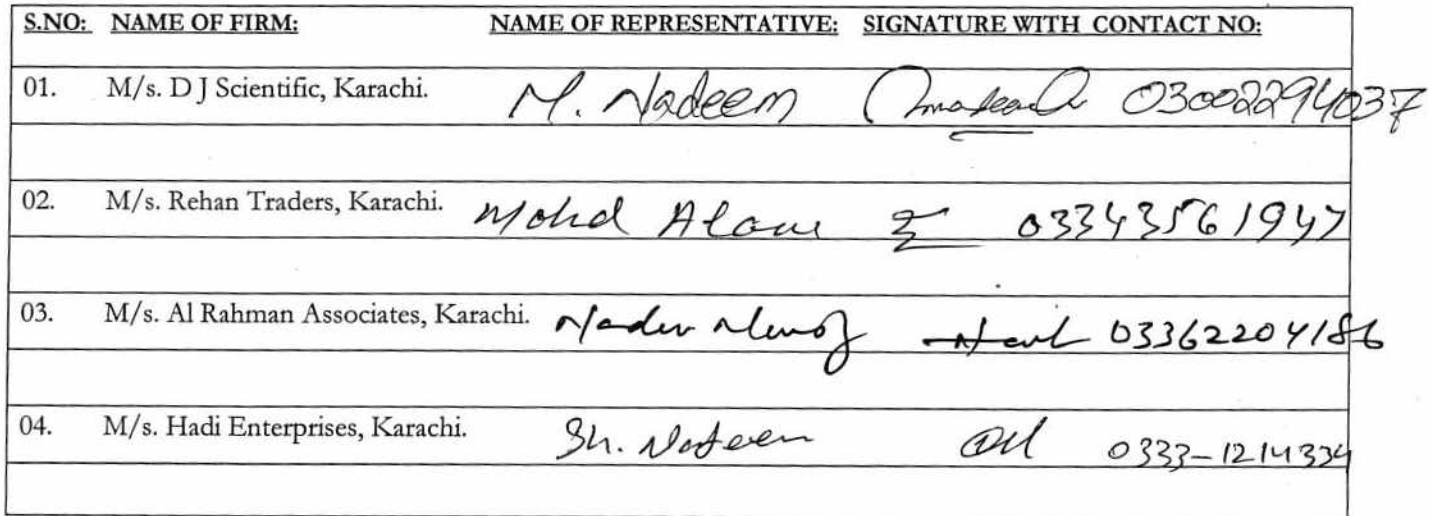 S.NO: NAME OF FIRM: NAME OF REPRESENTATIVE: SIGNATURE WITH CONTACT NO:
01. M/s. D J Scientific, Karachi. M. Nadeem 03002294037
02. M/s. Rehan Traders, Karachi. Mohd Alam 03343561947
03. M/s. Al Rahman Associates, Karachi. 03362204186
04. M/s. Hadi Enterprises, Karachi. Sh. 0333-1214334